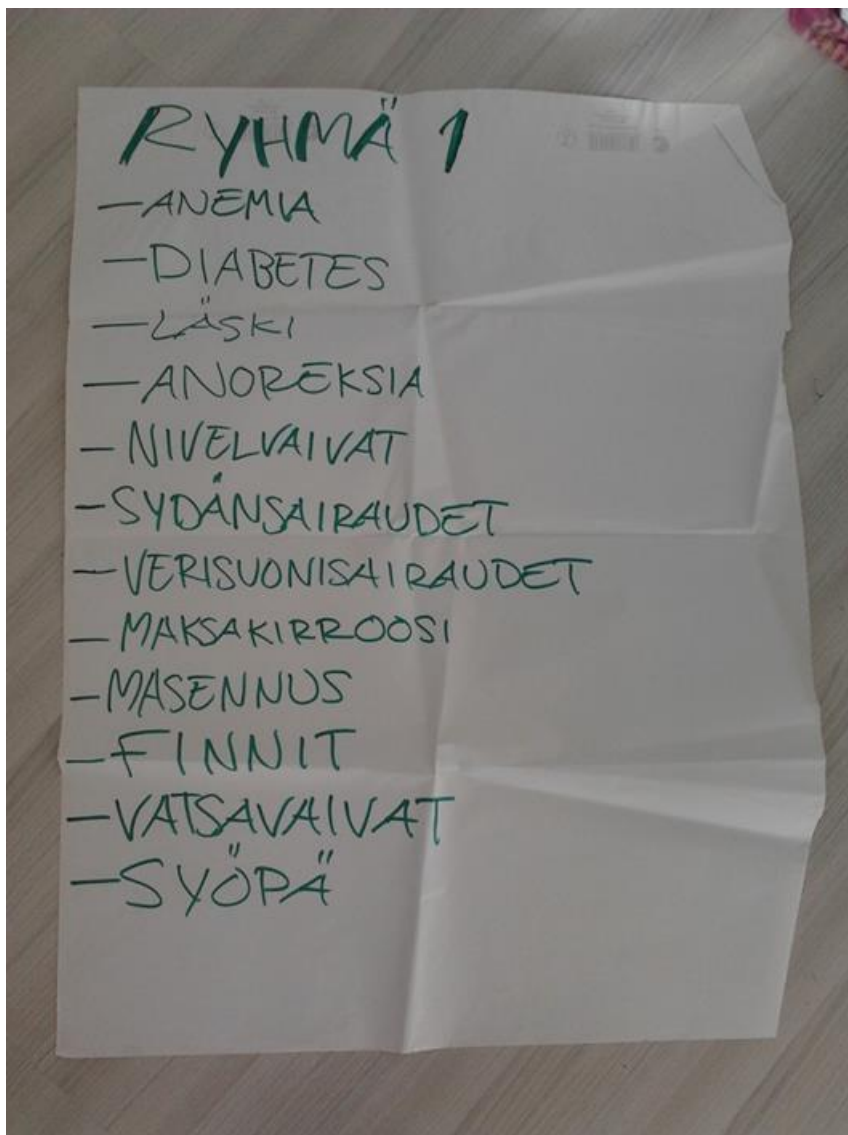 RYHMÄ 1
—ANEMIA
—DIABETES
—LÄSKI
—ANOREKSIA
—NIVELVAIVAT
—SYDÄNSAIRAUDET
—VERISUONISAIRAUDET
—MAKSAKIRROOSI
—MASENNUS
—FINNIT
—VATSAVAIVAT
—SYÖPÄ